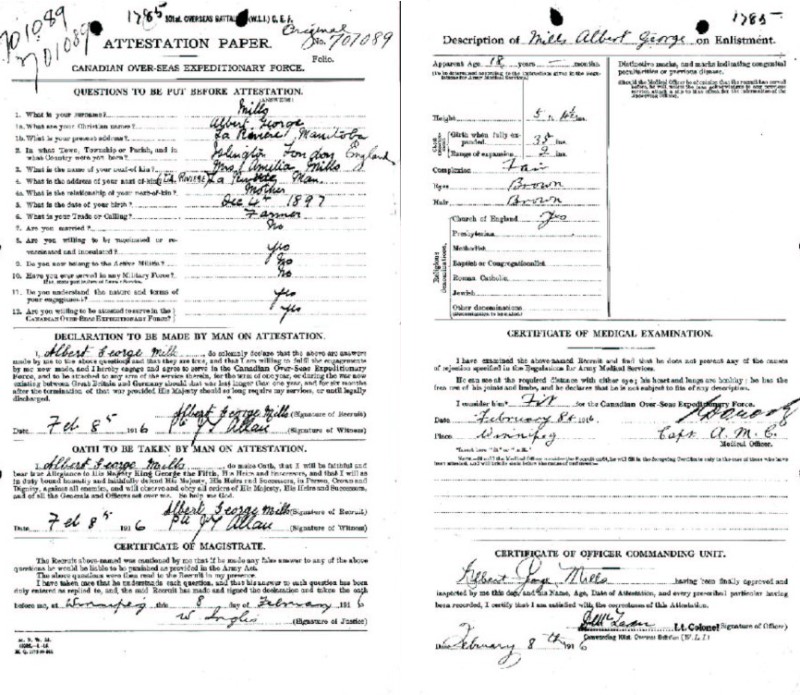 1785
101st. OVERSEAS BATTALION (W.L.I.) C. E. F.
701089
701089
Original
ATTESTATION PAPER.
No. 701089
Folio.
CANADIAN OVER-SEAS EXPEDITIONARY FORCE.
QUESTIONS TO BE PUT BEFORE ATTESTATION.
(ANSWERS)
1. What is your surname? Mills
1a. What are your Christian names? Albert George
1b. What is your present address? La Riviere Manitoba
2. In what Town, Township or Parish, and in
what Country were you born? Islington London England
3. What is the name of your next-of-kin? Mrs Amelia Mills
4. What is the address of your next-of-kin? La Riviere Man.
4a. What is the relationship of your next-of-kin? Mother
5. What is the date of your birth? Dec 4th 1897
6. What is your Trade or Calling? Farmer
7. Are you married? No
8. Are you willing to be vaccinated or re-
vaccinated and inoculated? Yes
9. Do you now belong to the Active Militia? No
10. Have you ever served in any Military Force? No
11. Do you understand the nature and terms of
your engagement? Yes
12. Are you willing to be attested to serve in the
CANADIAN OVER-SEAS EXPEDITIONARY FORCE? Yes
DECLARATION TO BE MADE BY MAN ON ATTESTATION.
I, Albert George Mills, do solemnly declare that the above are answers
made by me to the above questions and that they are true, and that I am willing to fulfil the engagements
by me now made, and I hereby engage and agree to serve in the Canadian Over-Seas Expeditionary
Force, and to be attached to any arm of the service therein, for the term of one year, or during the war now
existing between Great Britain and Germany should that war last longer than one year, and for six months
after the termination of that war provided His Majesty should so long require my services, or until legally
discharged.
Albert George Mills (Signature of Recruit)
Date Feb 8th 1916 Pte J Y Allan (Signature of Witness)
OATH TO BE TAKEN BY MAN ON ATTESTATION.
I, Albert George Mills, do make Oath, that I will be faithful and
bear true Allegiance to His Majesty King George the Fifth, His Heirs and Successors, and that I will as
in duty bound honestly and faithfully defend His Majesty, His Heirs and Successors, in Person, Crown and
Dignity, against all enemies, and will observe and obey all orders of His Majesty, His Heirs and Successors,
and of all the Generals and Officers set over me. So help me God.
Albert George Mills (Signature of Recruit)
Date Feb 8th 1916 Pte J Y Allan (Signature of Witness)
CERTIFICATE OF MAGISTRATE.
The Recruit above-named was cautioned by me that if he made any false answer to any of the above
questions he would be liable to be punished as provided in the Army Act.
The above questions were then read to the Recruit in my presence.
I have taken care that he understands each question, and that his answer to each question has been
duly entered as replied to, and the said Recruit has made and signed the declaration and taken the oath
before me, at Winnipeg this 8 day of February 1916
W Inglis (Signature of Justice)
1785
Description of Mills Albert George on Enlistment.
Apparent Age 18 years — months.
Distinctive marks, and marks indicating congenital
peculiarities or previous disease.
Height 5 ins.
Girth when fully ex-
panded 35 ins.
Range of expansion 2 ins.
Complexion Fair
Eyes Brown
Hair Brown
Religious denominations.
Church of England Yes
Presbyterian
Methodist
Baptist or Congregationalist
Roman Catholic
Jewish
Other denominations
CERTIFICATE OF MEDICAL EXAMINATION.
I have examined the above-named Recruit and find that he does not present any of the causes
of rejection specified in the Regulations for Army Medical Services.
He can see at the required distance with either eye; his heart and lungs are healthy; he has the
free use of his joints and limbs, and he declares that he is not subject to fits of any description.
I consider him* Fit for the Canadian Over-Seas Expeditionary Force.
Date February 8th 1916
Place Winnipeg Capt. A. M. C.
Medical Officer.
*Insert here "fit" or "unfit."
CERTIFICATE OF OFFICER COMMANDING UNIT.
Albert George Mills having been finally approved and
inspected by me this day, and his Name, Age, Date of Attestation, and every prescribed particular having
been recorded, I certify that I am satisfied with the correctness of this Attestation.
Lt. Colonel (Signature of Officer)
Commanding 101st. Overseas Battalion (W. L. I.)
Date February 8th 1916